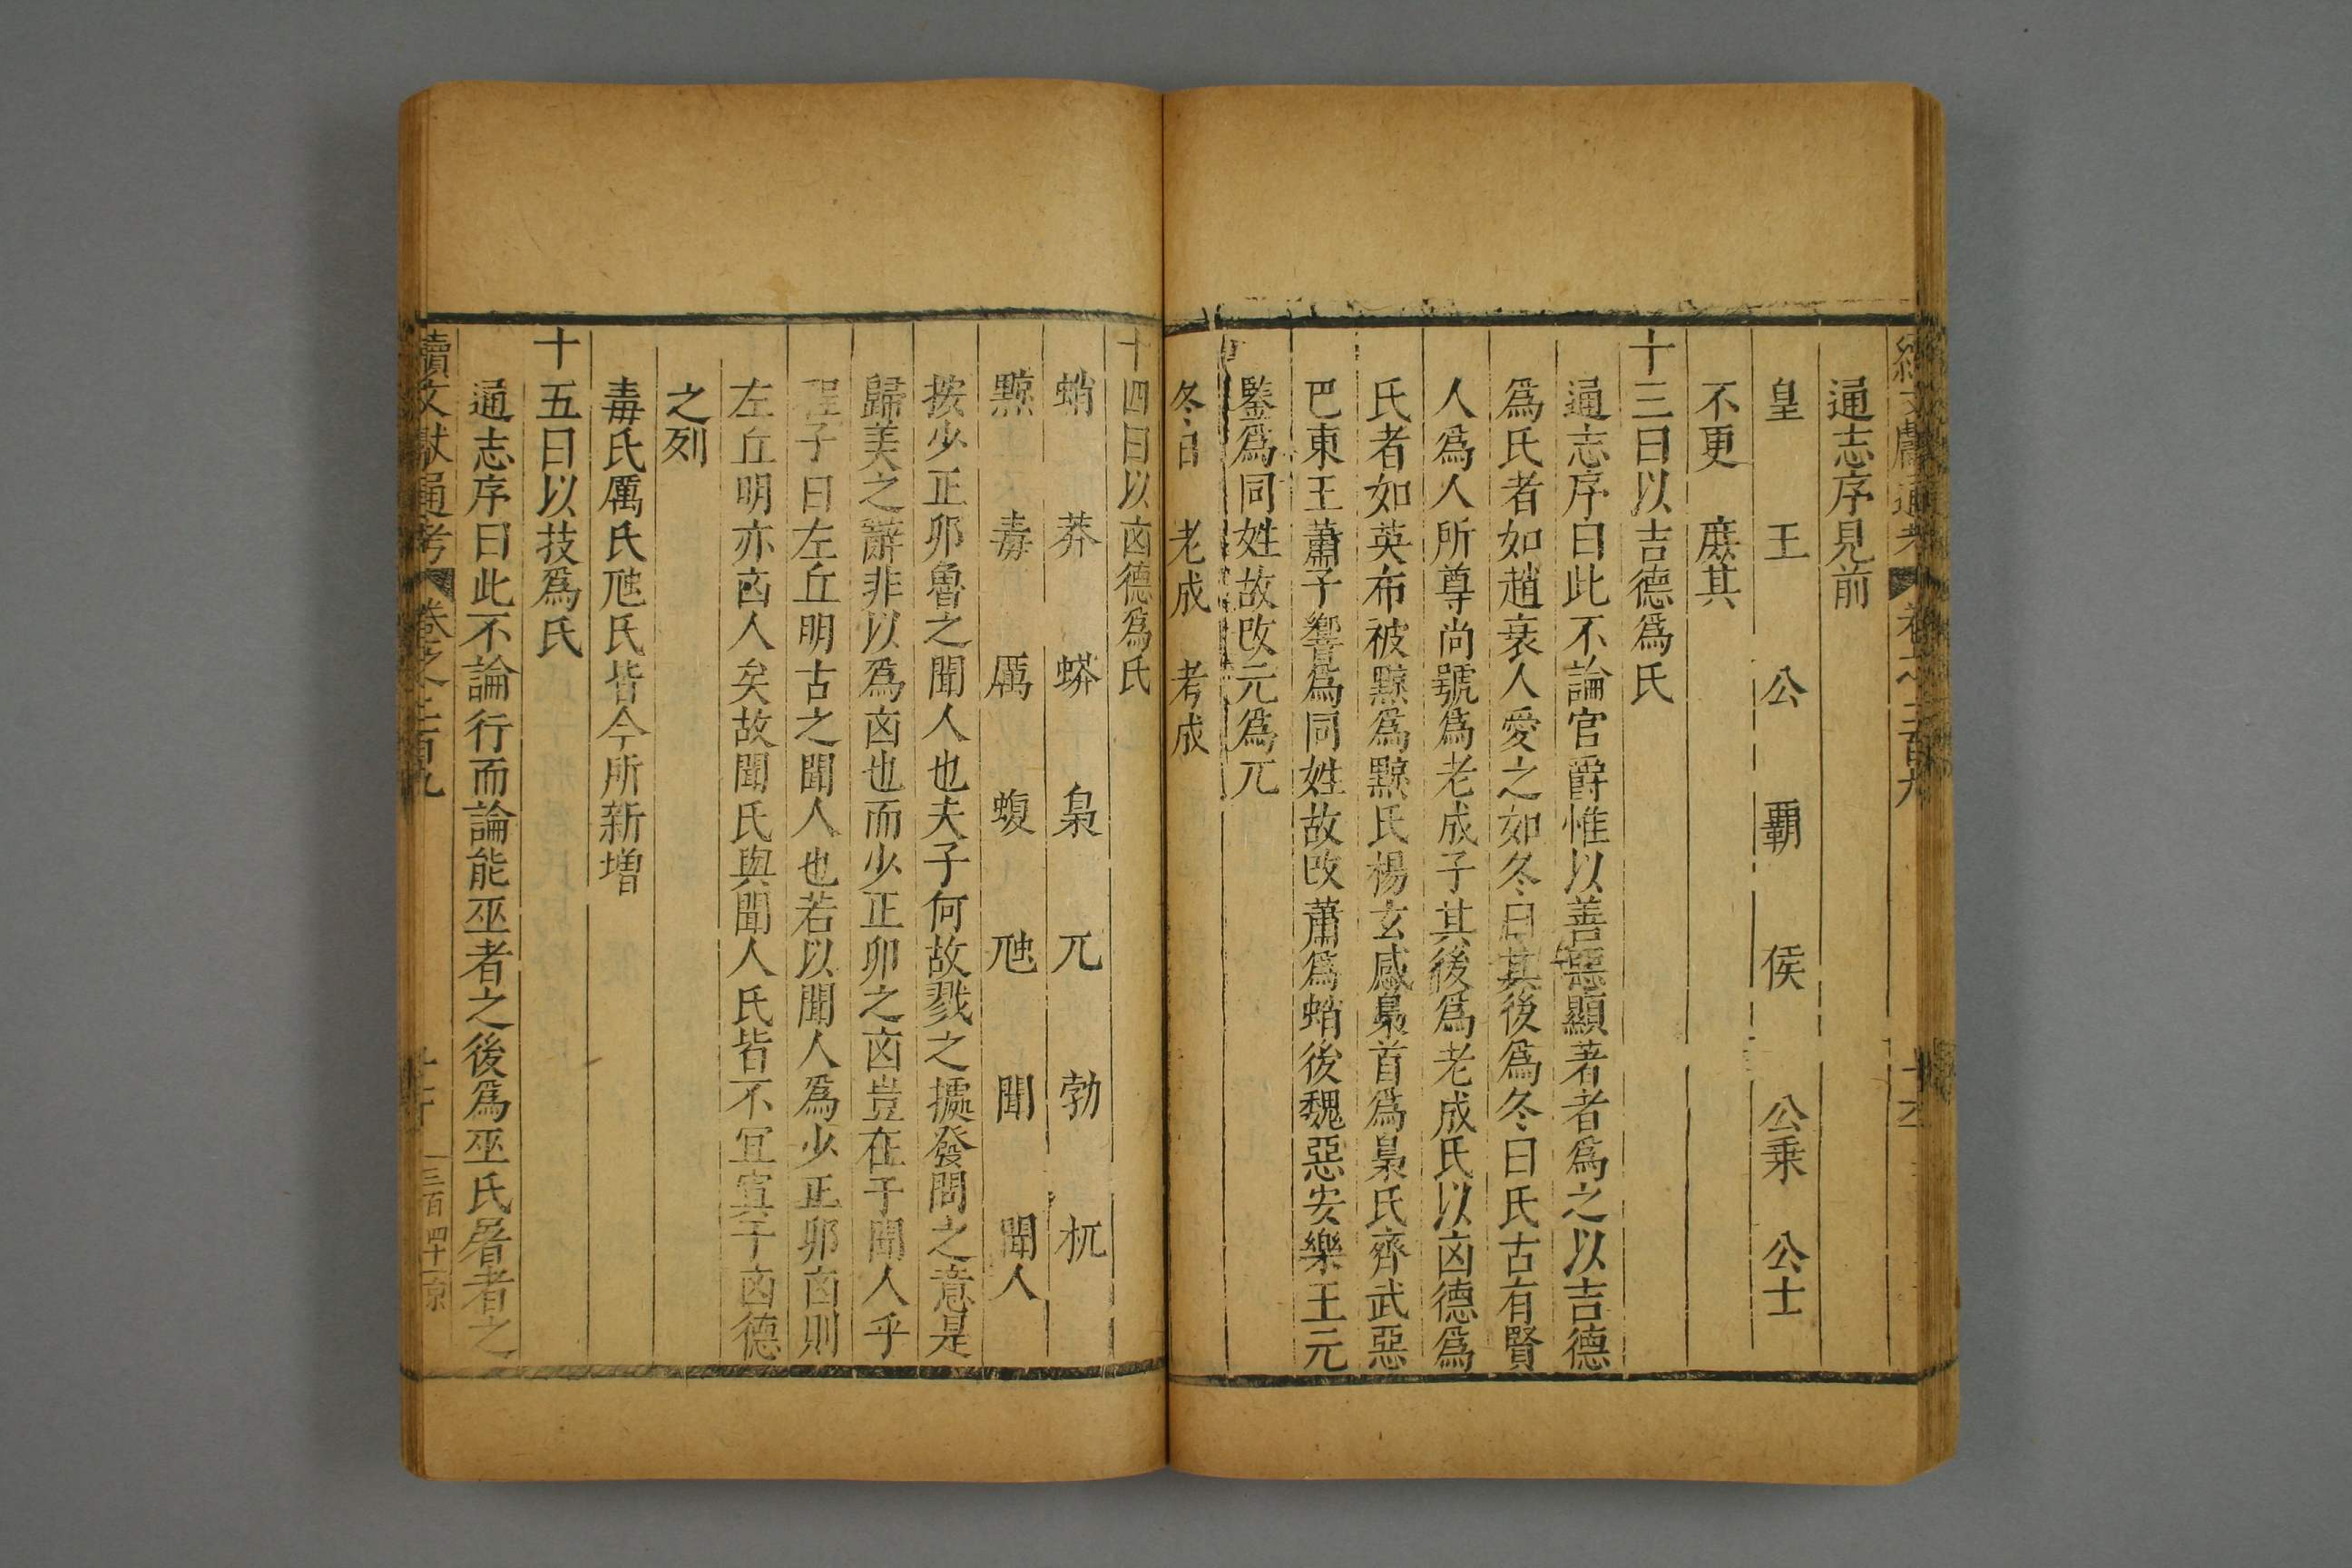 續文獻通考 卷之二百九
通志序見前
皇 王 公 覇 侯 公乗 公士
不更 庶其
十三曰以吉德爲氏
通志序曰此不論官爵惟以善惡顯著者爲之以吉德
爲氏者如趙衰人愛之如冬日其後爲冬日氏古有賢
人爲人所尊尚號爲老成子其後爲老成氏以㐫德爲
氏者如英布被黥爲黥氏楊玄感梟首爲梟氏齊武惡
巴東王蕭子響爲同姓故改蕭爲蛸後魏惡安樂王元
鑒爲同姓故改元爲兀
冬日 老成 考成
十四曰以㐫德爲氏
蛸 莽 蟒 梟 兀 勃 杌
黥 毒 厲 蝮 虺 聞 聞人
按少正卯魯之聞人也夫子何故戮之據發問之意是
歸美之辭非以爲㐫也而少正卯之㐫豈在于聞人乎
程子曰左丘明古之聞人也若以聞人爲少正卯㐫則
左丘明亦㐫人矣故聞氏與聞人氏皆不宜寘于㐫德
之列
毒氏厲氏虺氏皆今所新增
十五曰以技爲氏
通志序曰此不論行而論能巫者之後爲巫氏屠者之
續文獻通考 卷之二百九 三百四十